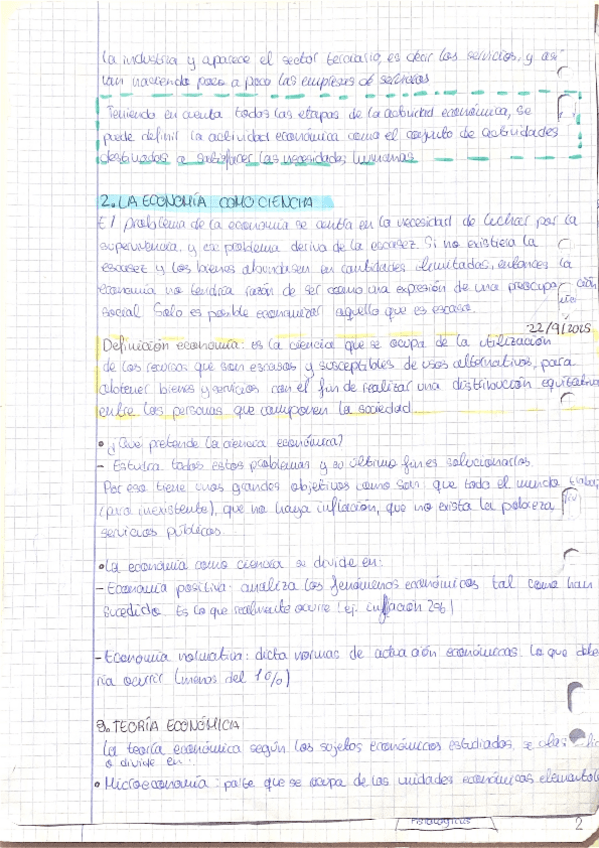 la industria y aparece el sector terciario, es decir los servicios, y así
van naciendo poco a poco las empresas de servicios
Teniendo en cuenta todas las etapas de la actividad económica, se
puede definir la actividad económica como el conjunto de actividades
destinadas a satisfacer las necesidades humanas
2. LA ECONOMÍA COMO CIENCIA
El problema de la economía se centra en la necesidad de luchar por la
supervivencia, y ese problema deriva de la escasez. Si no existiera la
escasez y los bienes abundasen en cantidades ilimitadas, entonces la
economía no tendría razón de ser como una expresión de una preocupación
social. Solo es posible economizar aquello que es escaso.
22/9/2025
Definición economía: es la ciencia que se ocupa de la utilización
de los recursos que son escasos y susceptibles de usos alternativos, para
obtener bienes y servicios con el fin de realizar una distribución equitativa
entre las personas que componen la sociedad.
• ¿Qué pretende la ciencia económica?
- Estudia todos estos problemas y su último fin es solucionarlos.
Por eso tiene unos grandes objetivos como son que todo el mundo
(paro inexistente), que no haya inflación, que no exista la pobreza
servicios públicos.
• La economía como ciencia se divide en:
- Economía positiva: analiza los fenómenos económicos tal como han
sucedido. Es lo que realmente ocurre (ej. inflación 2%)
- Economía normativa: dicta normas de actuación económicas. Lo que debe
ría ocurrir (menos del 10%)
3. TEORÍA ECONÓMICA
La teoría económica según los sujetos económicos estudiados, se
o divide en:
• Microeconomía: parte que se ocupa de las unidades económicas
2